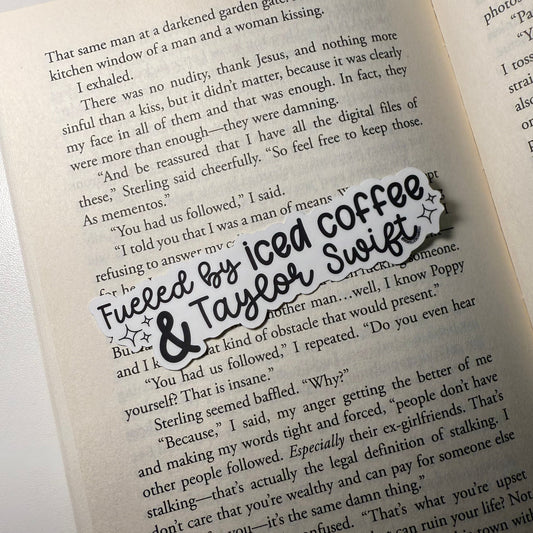 That same man at a darkened garden gate.
kitchen window of a man and a woman kissing.
I exhaled.
There was no nudity, thank Jesus, and nothing more
sinful than a kiss, but it didn't matter, because it was clearly
my face in all of them and that was enough. In fact, they
were more than enough—they were damning.
"And be reassured that I have all the digital files of
these," Sterling said cheerfully. "So feel free to keep those.
As mementos."
"You had us followed," I said.
"I told you that I was a man of means.
refusing to answer my
Fueled by iced coffee
& Taylor Swift
someone.
another man…well, I know Poppy
and I at kind of obstacle that would present."
"You had us followed," I repeated. "Do you even hear
yourself? That is insane."
Sterling seemed baffled. "Why?"
"Because," I said, my anger getting the better of me
and making my words tight and forced, "people don't have
other people followed. Especially their ex-girlfriends. That's
stalking—that's actually the legal definition of stalking. I
don't care that you're wealthy and can pay for someone else
you—it's the same damn thing."
confused. "That's what you're upset
at can ruin your life? Not
town with
photos
"Pa
"Y
I toss
strai
also
or